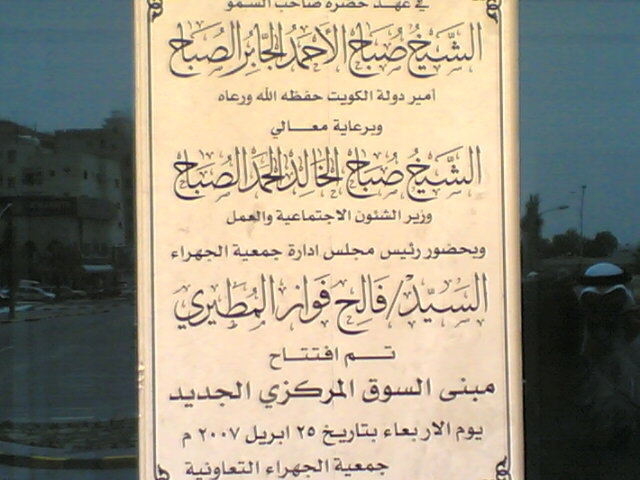 في عهد حضرة صاحب السمو
الشيخ صباح الأحمد الجابر الصباح
أمير دولة الكويت حفظه الله ورعاه
وبرعاية معالي
الشيخ صباح الخالد الحمد الصباح
وزير الشئون الاجتماعية والعمل
وبحضور رئيس مجلس ادارة جمعية الجهراء
السيد / فالح فواز المطيري
تم افتتاح
مبنى السوق المركزي الجديد
يوم الاربعاء بتاريخ ٢٥ ابريل ٢٠٠٧ م
جمعية الجهراء التعاونية